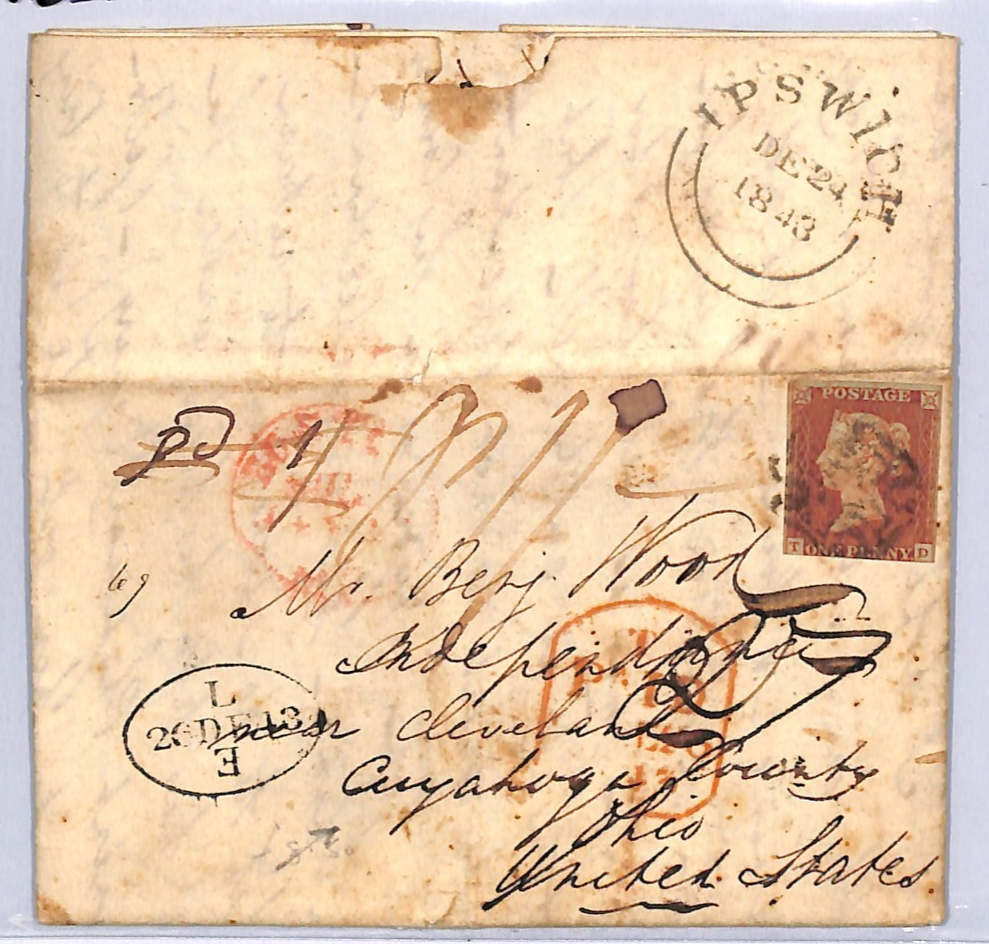 IPSWICH
DE 24
1843
Pd 1/
POSTAGE
T ONE PENNY D
Mr. Benj. Wood
Independence
near Cleveland
Cuyahoga County
Ohio
United States
L
26 DE 43
E
27